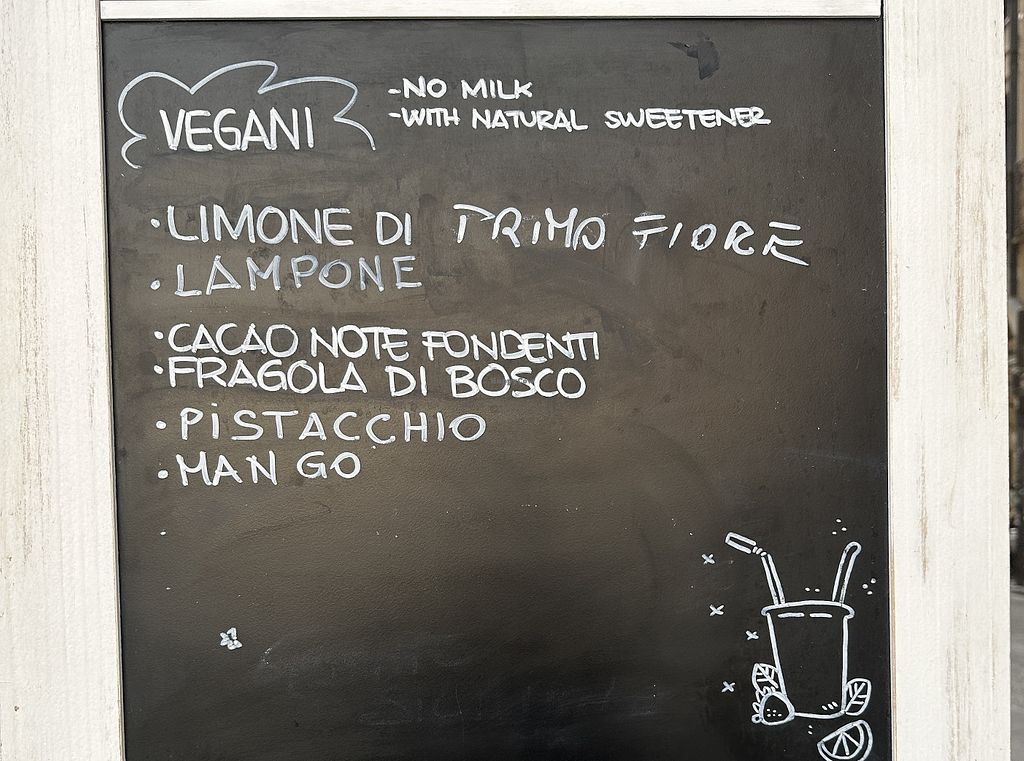 VEGANI
-NO MILK
-WITH NATURAL SWEETENER
•LIMONE DI PRIMO FIORE
•LAMPONE
•CACAO NOTE FONDENTI
•FRAGOLA DI BOSCO
•PISTACCHIO
•MANGO